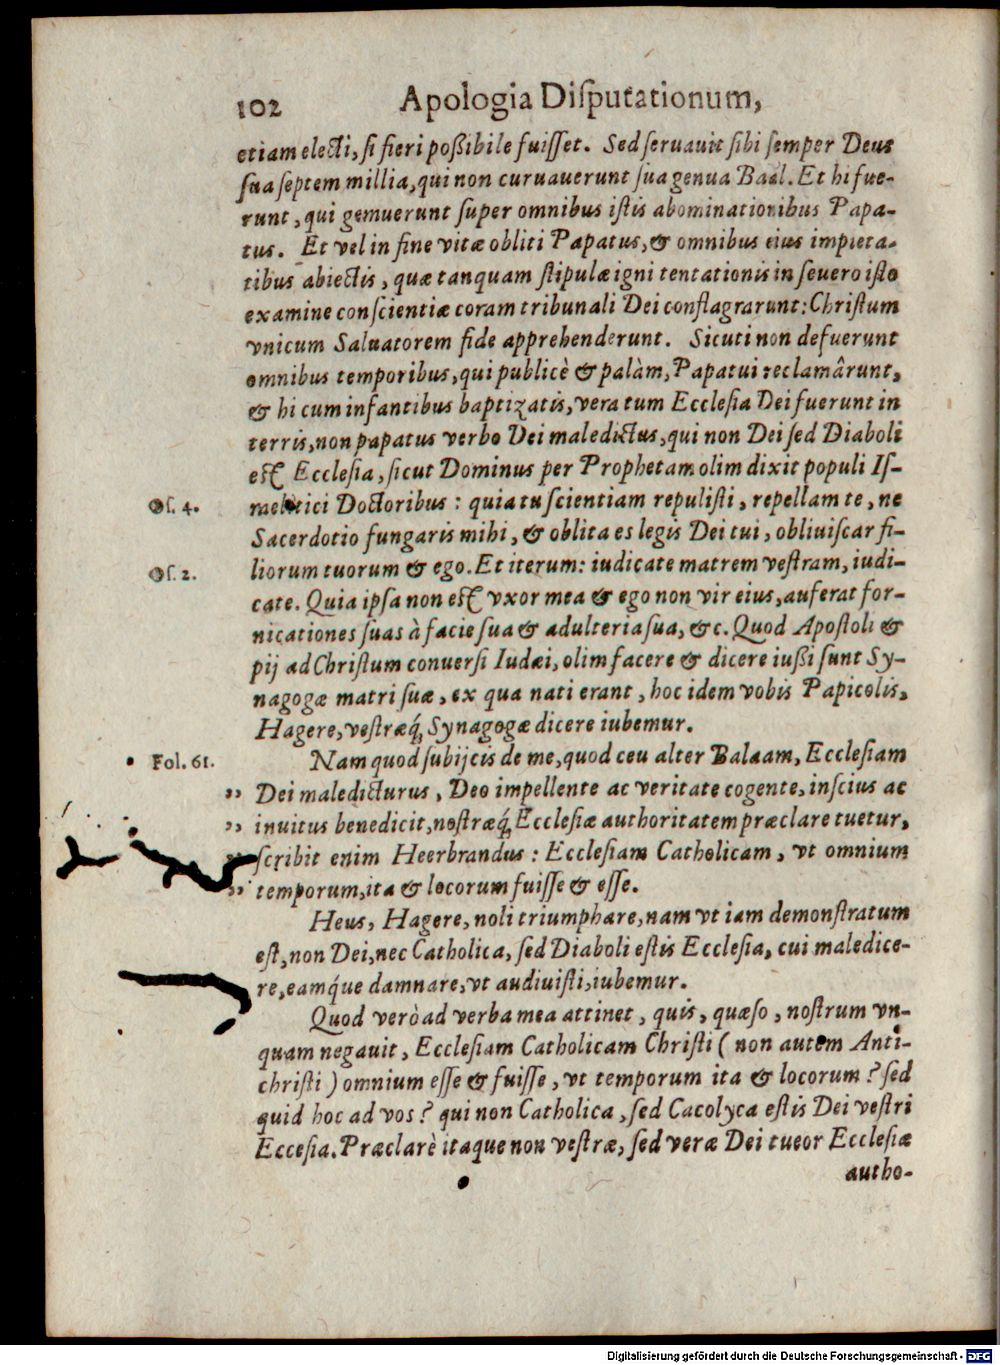 102 Apologia Disputationum,
etiam electi, si fieri poßibile fuisset. Sed seruauit sibi semper Deus
sua septem millia, qui non curuauerunt sua genua Baal. Et hi fue-
runt, qui gemuerunt super omnibus istis abominationibus Papa-
tus. Et vel in fine vitæ obliti Papatus, & omnibus eius impieta-
tibus abiectis, quæ tanquam stipulæ igni tentationis in seuero isto
examine conscientiæ coram tribunali Dei conflagrarunt: Christum
vnicum Saluatorem fide apprehenderunt. Sicuti non defuerunt
omnibus temporibus, qui publicè & palàm, Papatui reclamârunt,
& hi cum infantibus baptizatis, vera tum Ecclesia Dei fuerunt in
terris, non papatus verbo Dei maledictus, qui non Dei sed Diaboli
est Ecclesia, sicut Dominus per Prophetam olim dixit populi Is-
Os. 4. raelitici Doctoribus: quia tu scientiam repulisti, repellam te, ne
Sacerdotio fungaris mihi, & oblita es legis Dei tui, obliuiscar fi-
Os. 2. liorum tuorum & ego. Et iterum: iudicate matrem vestram, iudi-
cate. Quia ipsa non est vxor mea & ego non vir eius, auferat for-
nicationes suas à facie sua & adulteria sua, &c. Quod Apostoli &
pij ad Christum conuersi Iudæi, olim facere & dicere iußi sunt Sy-
nagogæ matri suæ, ex qua nati erant, hoc idem vobis Papicolis,
Hagere, vestræq́; Synagogæ dicere iubemur.
Fol. 61. Nam quod subijcis de me, quod ceu alter Balaam, Ecclesiam
„ Dei maledicturus, Deo impellente ac veritate cogente, inscius ac
„ inuitus benedicit, nostræq́; Ecclesiæ authoritatem præclare tuetur,
„ scribit enim Heerbrandus: Ecclesiam Catholicam, vt omnium
„ temporum, ita & locorum fuisse & esse.
Heus, Hagere, noli triumphare, nam vt iam demonstratum
est, non Dei, nec Catholica, sed Diaboli estis Ecclesia, cui maledice-
re, eamq́ue damnare, vt audiuisti, iubemur.
Quod verò ad verba mea attinet, quis, quæso, nostrum vn-
quam negauit, Ecclesiam Catholicam Christi (non autem Anti-
christi) omnium esse & fuisse, vt temporum ita & locorum? sed
quid hoc ad vos? qui non Catholica, sed Cacolyca estis Dei vestri
Eccesia. Præclarè itaque non vestræ, sed veræ Dei tueor Ecclesiæ
autho-
Digitalisierung gefördert durch die Deutsche Forschungsgemeinschaft - DFG